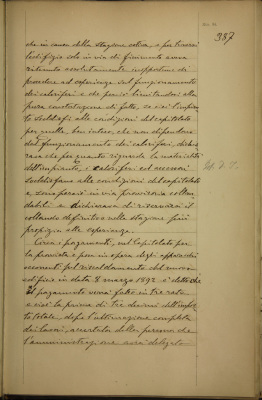 387
che in causa della stagione estiva, e per trovarsi
l'edificio solo in via di finimento aveva
ritenuto assolutamente inopportuno di
procedere ad esperienze sul funzionamento
dei caloriferi e che perciò limitandosi alla
pura constatazione di fatto, se cioè l'impian
to soddisfi alle condizioni del capitolato
per quella, ben inteso, che non dipendono
dal funzionamento dei caloriferi, dichia
rava che per quanto riguarda la materialità
dell'impianto, i caloriferi ed accessori
soddisfano alle condizioni del capitolato
e sono perciò in via provvisoria collau
dabili e dichiarava di riservarsi il
collaudo definitivo nella stagione più
propizia alle esperienze.
Circa i pagamenti, nel Capitolato per
la provvista e posa in opera degli apparecchi
occorrenti pel riscaldamento del nuovo
edificio in data 8 marzo 1892 è detto che
il pagamento verrà fatto in tre rate
e cioè la prima di tre decimi dell'impor
to totale, dopo l'ultimazione completa
dei lavori, accertata dalla persona che
l'amministrazione avrà delegato